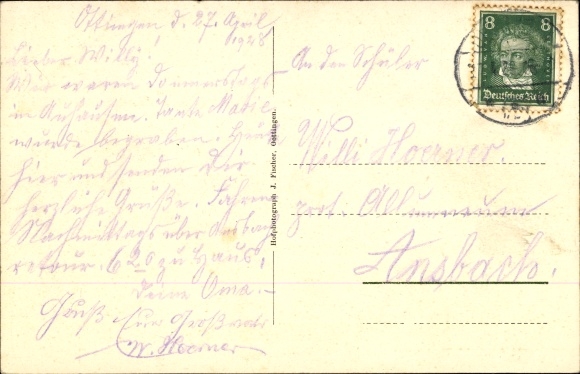 Öttingen, d. 27. April
1928
Lieber Willy!
Wir waren Donnerstags
in Auhausen. Tante Marie
wurde begraben. Heute
hier und senden Dir
herzliche Grüße. Fahren
Nachmittags über Ansbach
retour. 6 20 zu Haus,
Deine Oma.-
Gruß Euer Großvater
W. Hoerner
Hofphotograph J. Fischer, Oettingen.
An den Schüler
Willi Hoerner.
prot. Alumneum
Ansbach.
8 8
Deutsches Reich